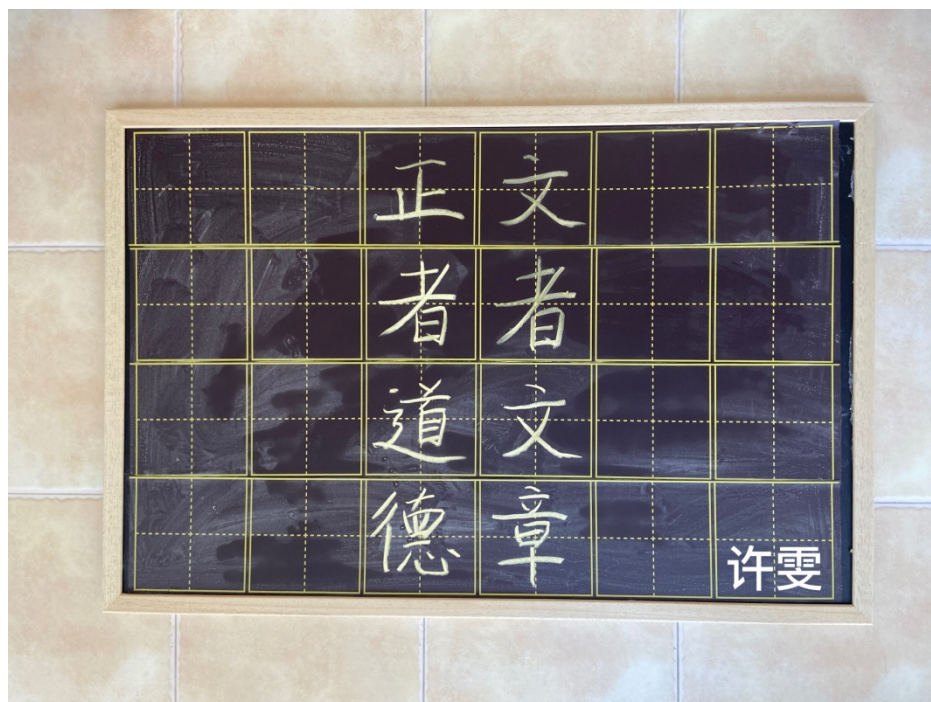 文者文章
正者道德
许雯